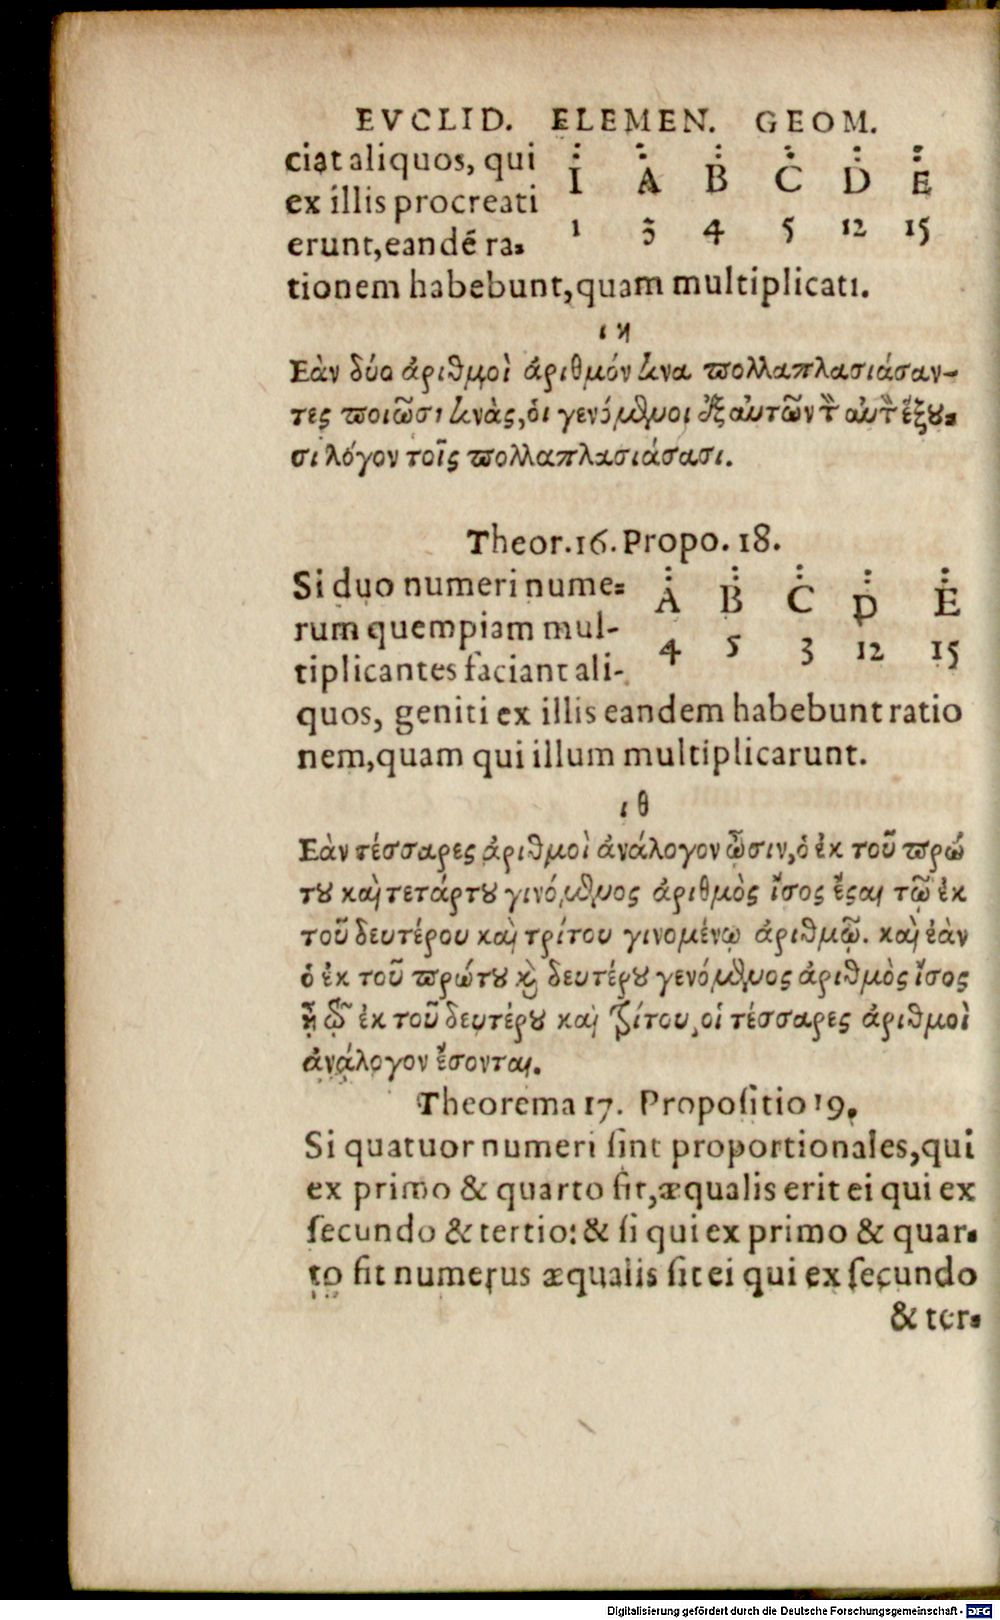 EVCLID. ELEMEN. GEOM.
ciat aliquos, qui
ex illis procreati
erunt, eandē ra-
I A B C D E
1 3 4 5 12 15
tionem habebunt, quam multiplicati.
ιη
Εὰν δύο ἀριθμοὶ ἀριθμόν τινα πολλαπλασιάσαν-
τες ποιῶσι τινὰς, ὁι γενόμενοι ἐξ αυτῶν τὸν αὐτὸν ἕξου-
σι λόγον τοῖς πολλαπλασιάσασι.
Theor. 16. Propo. 18.
Si duo numeri nume-
rum quempiam mul-
tiplicantes faciant ali-
A B C D E
4 5 3 12 15
quos, geniti ex illis eandem habebunt ratio
nem, quam qui illum multiplicarunt.
ιθ
Εὰν τέσσαρες ἀριθμοὶ ἀνάλογον ὦσιν, ὁ ἐκ τοῦ πρώ
του καὶ τετάρτου γινόμενος ἀριθμὸς ἴσος ἔσαι τῷ ἐκ
τοῦ δευτέρου καὶ τρίτου γινομένῳ ἀριθμῷ. καὶ ἐὰν
ὁ ἐκ τοῦ πρώτου καὶ δευτέρου γενόμενος ἀριθμὸς ἴσος
ᾖ τῷ ἐκ τοῦ δευτέρου καὶ τρίτου, οἱ τέσσαρες ἀριθμοὶ
ἀνάλογον ἔσονται.
Theorema 17. Propoſitio 19.
Si quatuor numeri ſint proportionales, qui
ex primo & quarto fit, æqualis erit ei qui ex
ſecundo & tertio: & ſi qui ex primo & quar-
to fit numerus æqualis ſit ei qui ex ſecundo
& ter-
Digitalisierung gefördert durch die Deutsche Forschungsgemeinschaft - DFG